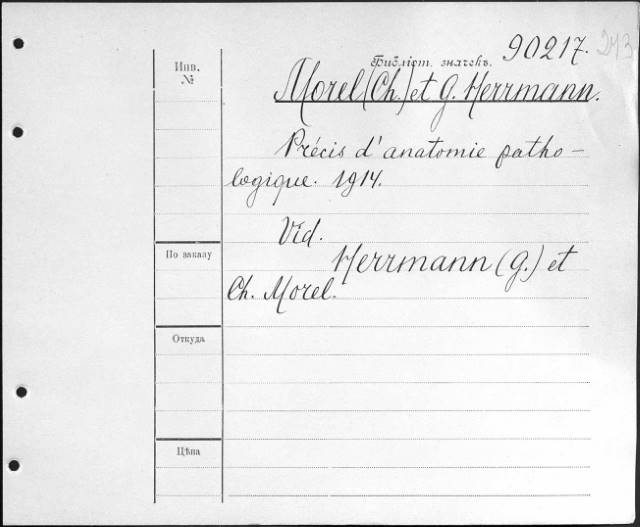 90217.
243
Инв.
№
Библіот. значекъ.
Morel (Ch.) et G. Herrmann.
Précis d'anatomie patho-
logique. 1914.
Vid.
Herrmann (G.) et
Ch. Morel.
По заказу
Откуда
Цѣна